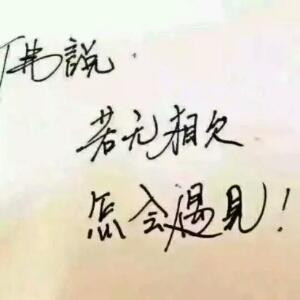 佛説.
若无相欠
怎会遇見!